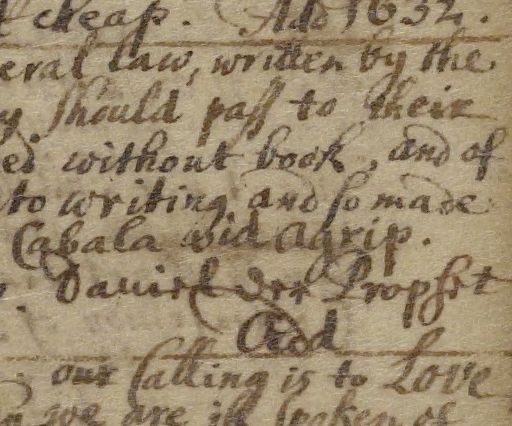 cheap. Add 1632.
eral law, written by the
y should pass to their
ed without book, and of
to writing and so made
Cabala vid Agrip.
Daniel der Prophet
God
our Calling is to Love
we are ill spoken of